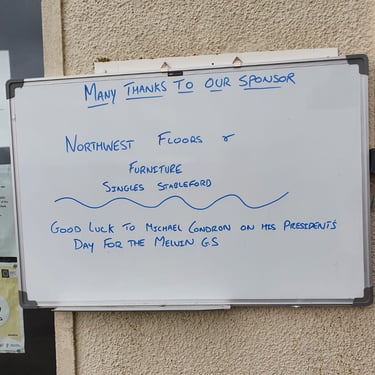 MANY THANKS TO OUR SPONSOR
NORTHWEST FLOORS &
FURNITURE
SINGLES STABLEFORD
GOOD LUCK TO MICHAEL CONDRON ON HIS PRESIDENTS
DAY FOR THE MELVIN G.S